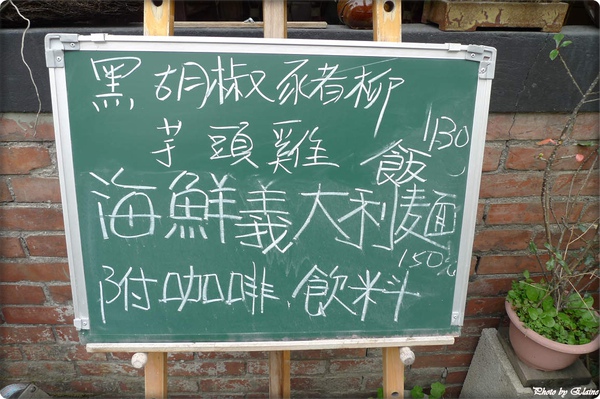 黑胡椒豬柳
芋頭雞飯 130
海鮮義大利麵
150元
附咖啡、飲料
Photo by Elaine